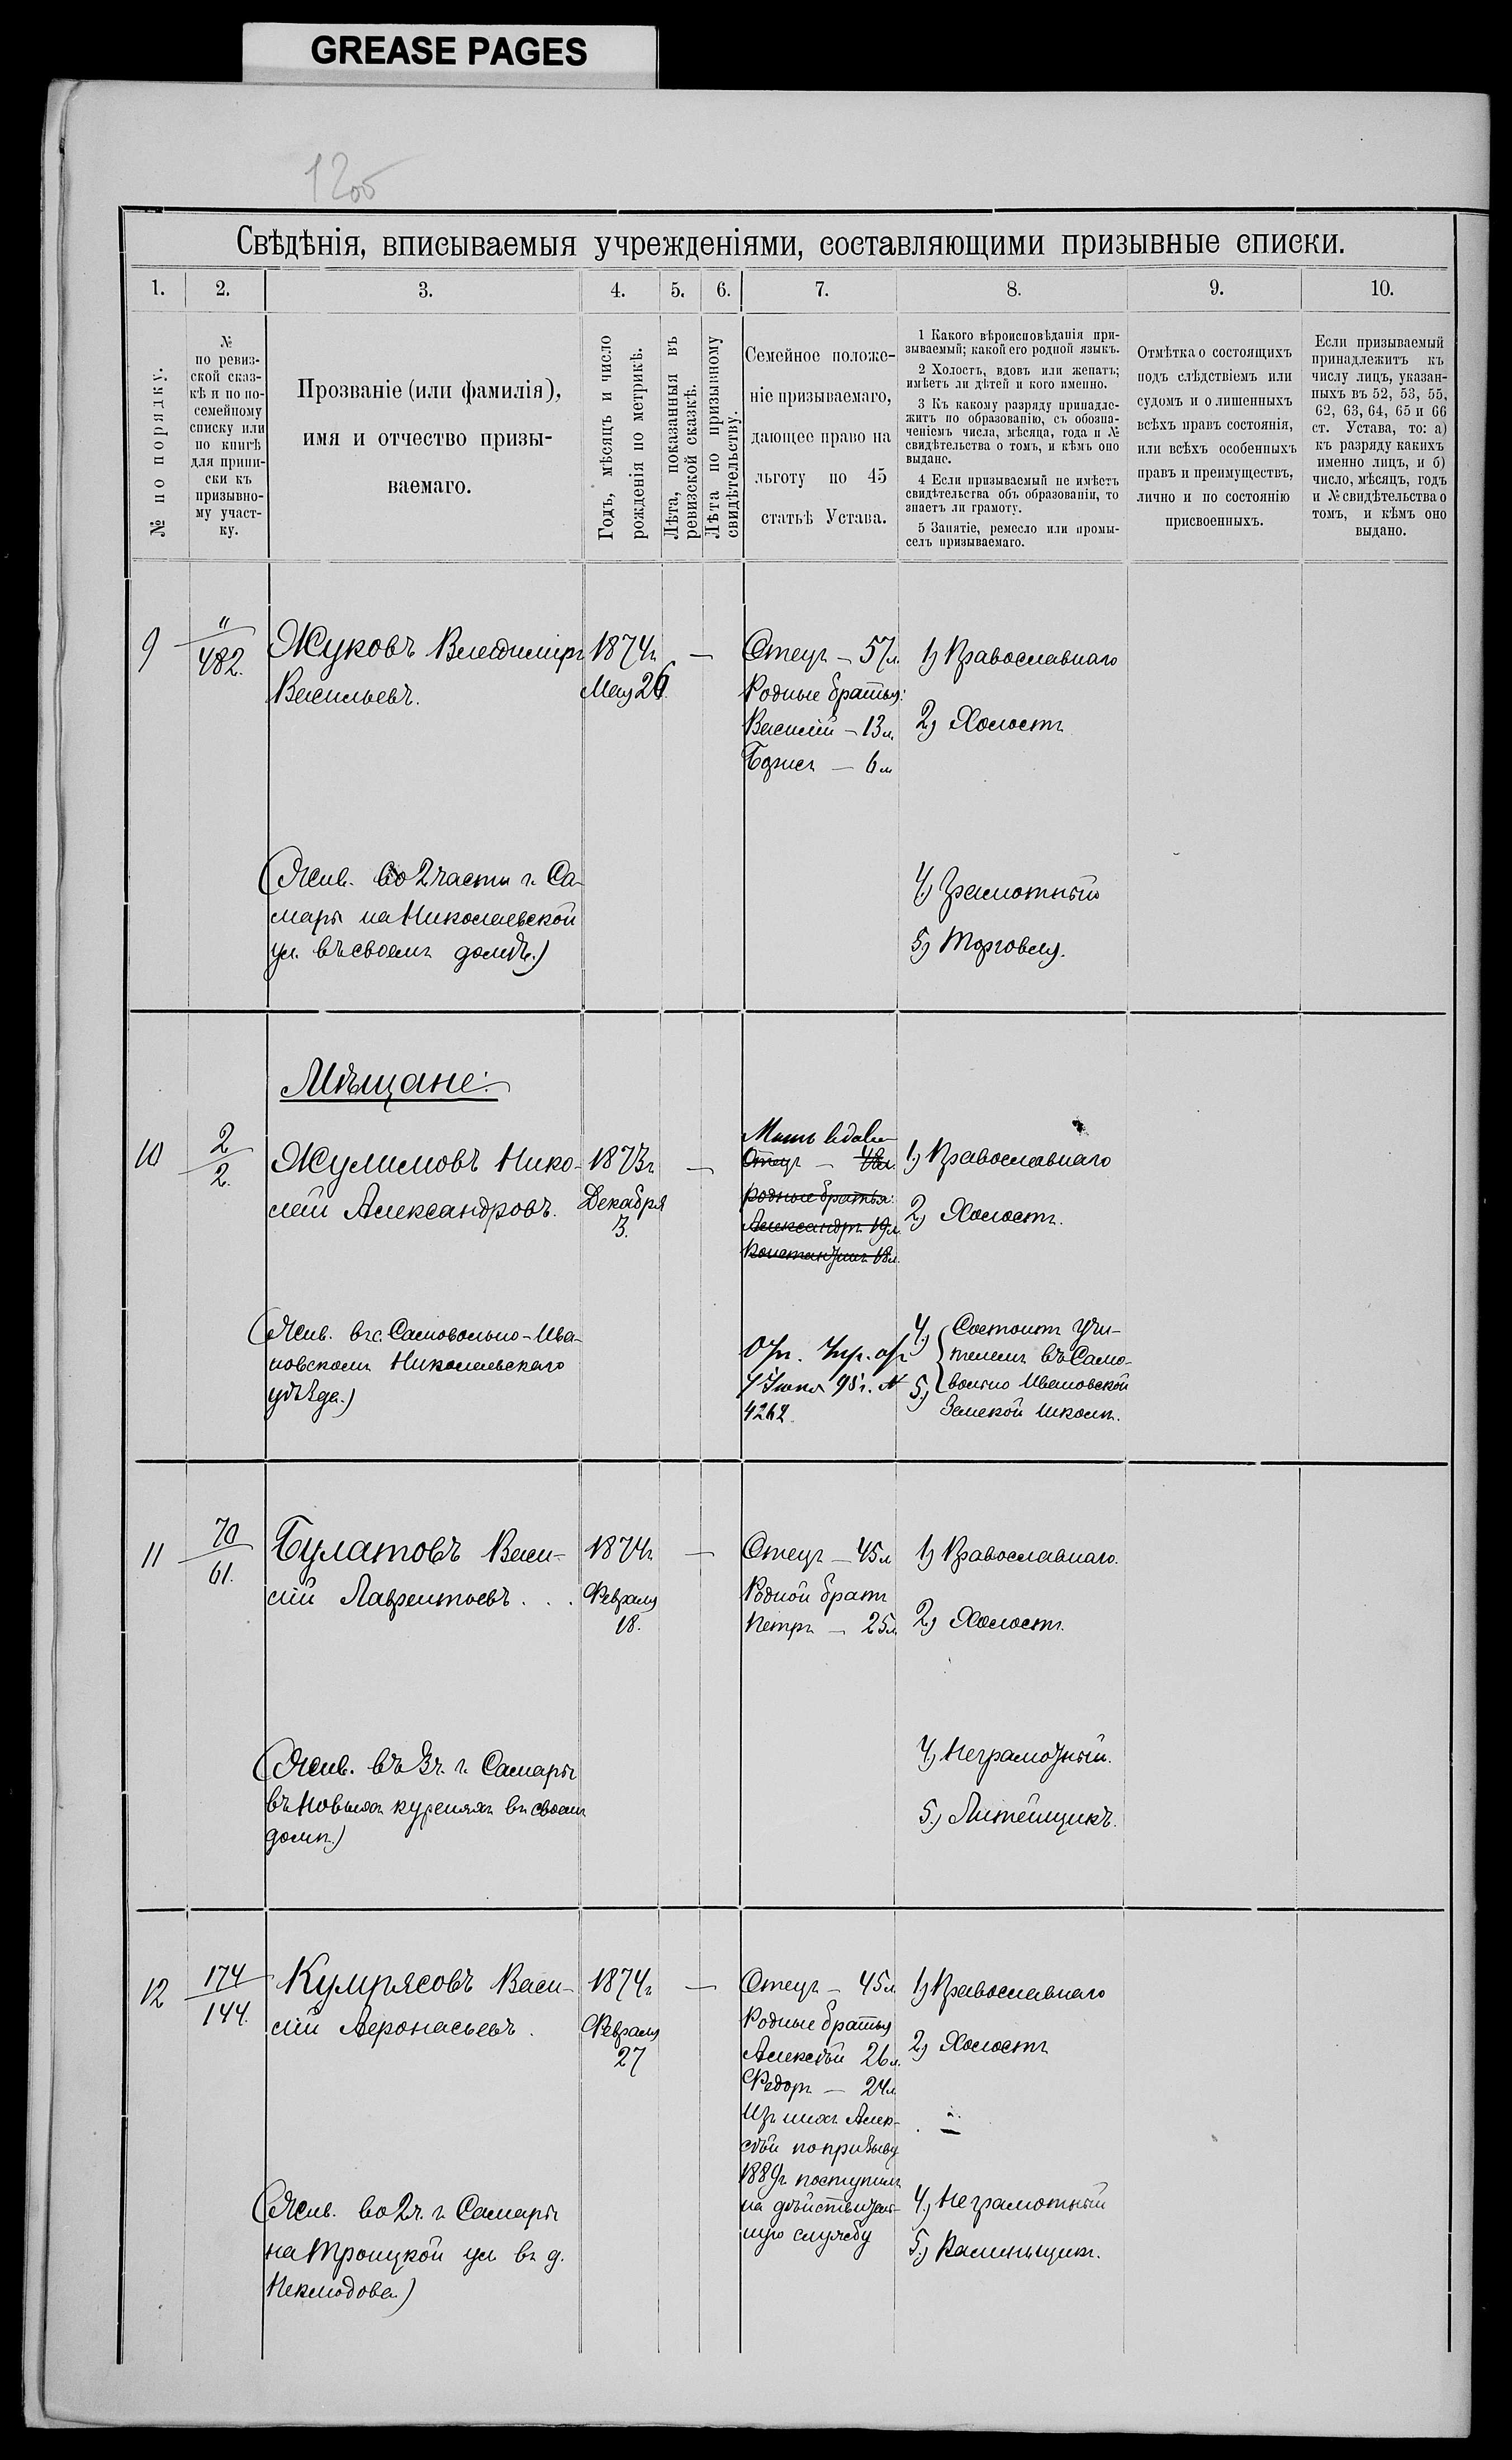 GREASE PAGES
1205
Свѣдѣнія, вписываемыя учрежденіями, составляющими призывные списки.
1.
2.
3.
4.
5.
6.
7.
8.
9.
10.
№ по порядку.
№
по ревиз-
ской сказ-
кѣ и по по-
семейному
списку или
по книгѣ
для припи-
ски къ
призывно-
му участ-
ку.
Прозваніе (или фамилія),
имя и отчество призы-
ваемаго.
Годъ, мѣсяцъ и число
рожденія по метрикѣ.
Лѣта, показанныя въ
ревизской сказкѣ.
Лѣта по призывному
свидѣтельству.
Семейное положе-
ніе призываемаго,
дающее право на
льготу по 45
статьѣ Устава.
1 Какого вѣроисповѣданія при-
зываемый; какой его родной языкъ.
2 Холостъ, вдовъ или женатъ;
имѣетъ ли дѣтей и кого именно.
3 Къ какому разряду принадле-
житъ по образованію, съ обозна-
ченіемъ числа, мѣсяца, года и №
свидѣтельства о томъ, и кѣмъ оно
выдано.
4 Если призываемый не имѣетъ
свидѣтельства объ образованіи, то
знаетъ ли грамоту.
5 Занятіе, ремесло или промы-
селъ призываемаго.
Отмѣтка о состоящихъ
подъ слѣдствіемъ или
судомъ и о лишенныхъ
всѣхъ правъ состоянія,
или всѣхъ особенныхъ
правъ и преимуществъ,
лично и по состоянію
присвоенныхъ.
Если призываемый
принадлежитъ къ
числу лицъ, указан-
ныхъ въ 52, 53, 55,
62, 63, 64, 65 и 66
ст. Устава, то: а)
къ разряду какихъ
именно лицъ, и б)
число, мѣсяцъ, годъ
и № свидѣтельства о
томъ, и кѣмъ оно
выдано.
9
"
482.
Жуковъ Владиміръ
Васильевъ.
1874г
Мая 26.
—
Отецъ — 57л.
Родные братья:
Василій — 13л.
Борисъ — 6л
1) Православнаго
2) Холостъ
(Жив. во 2 части г. Са-
мары на Николаевской
ул. въ своемъ домѣ.)
4) Грамотный
5) Торговля.
Мѣщане:
10
2
2.
Жулимовъ Нико-
лай Александровъ.
1873г
Декабря
3.
—
Мать вдова
Отецъ — 48л.
Родные братья:
Александръ 19л.
Константинъ 18л.
1) Православнаго
2) Холостъ.
(Жив. въ с. Самовольно-Ива-
новскомъ Николаевскаго
уѣзда.)
7 Іюня 95г. №
4262.
4.) Состоитъ учи-
телемъ въ Само-
5.) вольно Ивановской
Земской школѣ.
11
70
61.
Булатовъ Васи-
лій Лаврентьевъ . . .
1874г
Февраля
18.
—
Отецъ — 45л
Родной братъ
Петръ — 25л
1) Православнаго.
2) Холостъ.
(Жив. въ 3ч. г. Самары
въ Новыхъ куреняхъ въ своемъ
домѣ.)
4) Неграмотный.
5.) Литейщикъ.
12
174
144.
Кумрясовъ Васи-
лій Аѳонасьевъ.
1874г
Февраля
27
—
Отецъ — 45л
Родные братья
Алексѣй 26л.
Федоръ — 24л
Изъ нихъ Алек-
сѣй по призыву
1889г поступилъ
на дѣйствитель-
ную службу
1) Православнаго
2) Холостъ
(Жив. во 2ч. г. Самары
на Троицкой ул въ д.
Неклюдова)
4.) Неграмотный
5.)